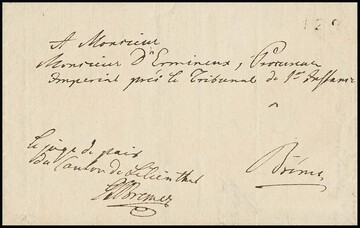 129
A Monsieur
Monsieur D'Ermineux, Procureur
Imperial près le Tribunal de 1re Instance
a
Brème
Le juge de paix
du Canton de Lilienthal